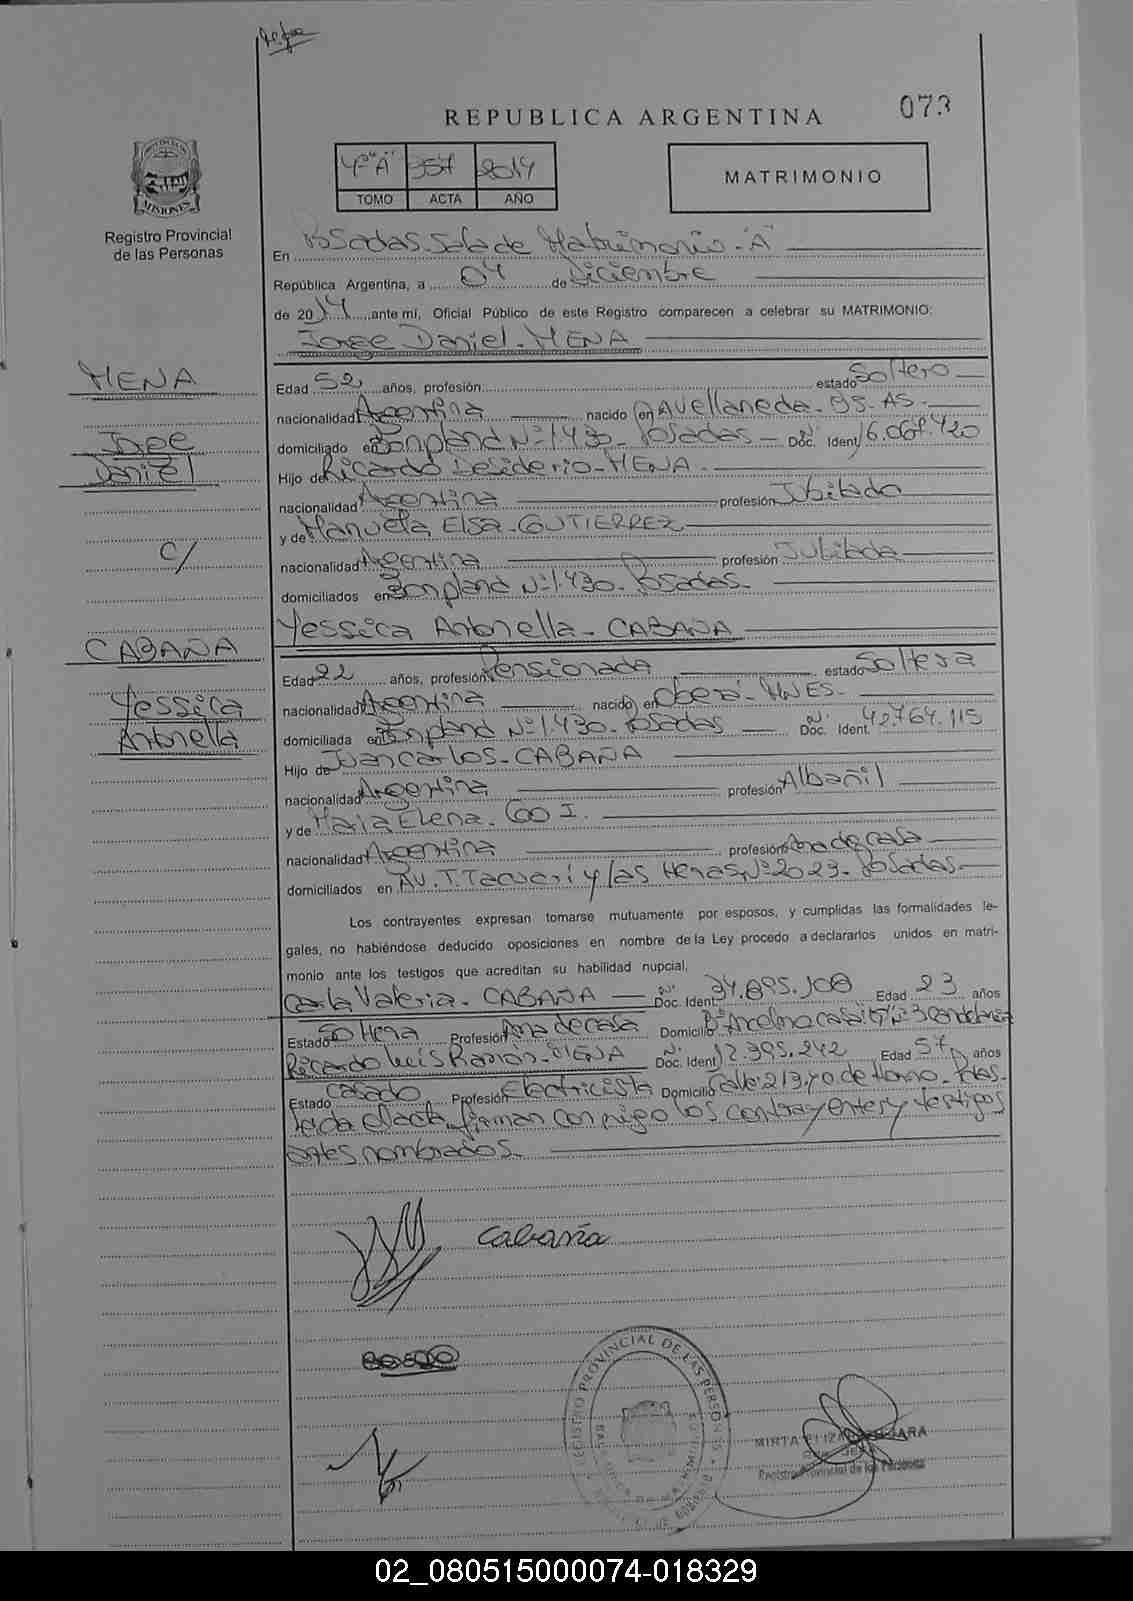 073
REPUBLICA ARGENTINA
4º "A" 357 2014
TOMO ACTA AÑO
MATRIMONIO
MISIONES
Registro Provincial
de las Personas
En Posadas Sala de Matrimonio "A"
República Argentina, a 04 de Diciembre
de 2014 ante mí, Oficial Público de este Registro comparecen a celebrar su MATRIMONIO:
Jorge Daniel - MENA
MENA
Jorge
Daniel
C/
CABAÑA
Yessica
Antonella
Edad 52 años, profesión estado Soltero
nacionalidad Argentina nacido en Avellaneda - BS. AS.
domiciliado en Bonpland Nº 1.430 - Posadas - Nº Doc. Ident. 16.067.420
Hijo de Ricardo Desiderio - MENA.
nacionalidad Argentina profesión Jubilado
y de Manuela Elsa - GUTIERREZ
nacionalidad Argentina profesión Jubilada
domiciliados en Bonpland Nº 1.430 - Posadas.
Yessica Antonella - CABAÑA
Edad 22 años, profesión Pensionada estado Soltera
nacionalidad Argentina nacido en Oberá - MNES.
domiciliada en Bonpland Nº 1.430 - Posadas Nº Doc. Ident. 42.764.115
Hijo de Juan Carlos - CABAÑA
nacionalidad Argentina profesión Albañil
y de Maria Elena -
nacionalidad Argentina profesión Ama de casa
domiciliados en Av. T. Tacuari y las Heras Nº 2023 - Posadas -
Los contrayentes expresan tomarse mutuamente por esposos, y cumplidas las formalidades le-
gales, no habiéndose deducido oposiciones en nombre de la Ley procedo a declararlos unidos en matri-
monio ante los testigos que acreditan su habilidad nupcial,
Carla Valeria - CABAÑA — Nº Doc. Ident. 34.895.108 Edad 23 años
Estado Soltera Profesión Ama de casa Domicilio Bº Anselmo casa Nº 3 Candelaria
Ricardo Luis Ramon - MENA Nº Doc. Ident. 12.395.242 Edad 57 años
Estado casado Profesión Electricista Domicilio Calle 213, Hº de Horno - Pdas.
Leida el acta, firman conmigo los contrayentes y testigos
antes nombrados.
Cabaña
REGISTRO PROVINCIAL DE LAS PERSONAS
MIRTA
Registro Provincial de las Personas
02_080515000074-018329